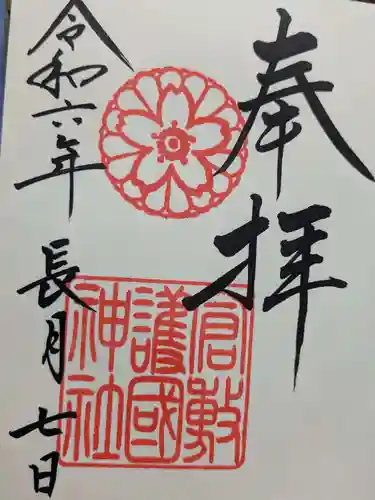 奉拝
倉敷
護國
神社
令和六年 長月 七日